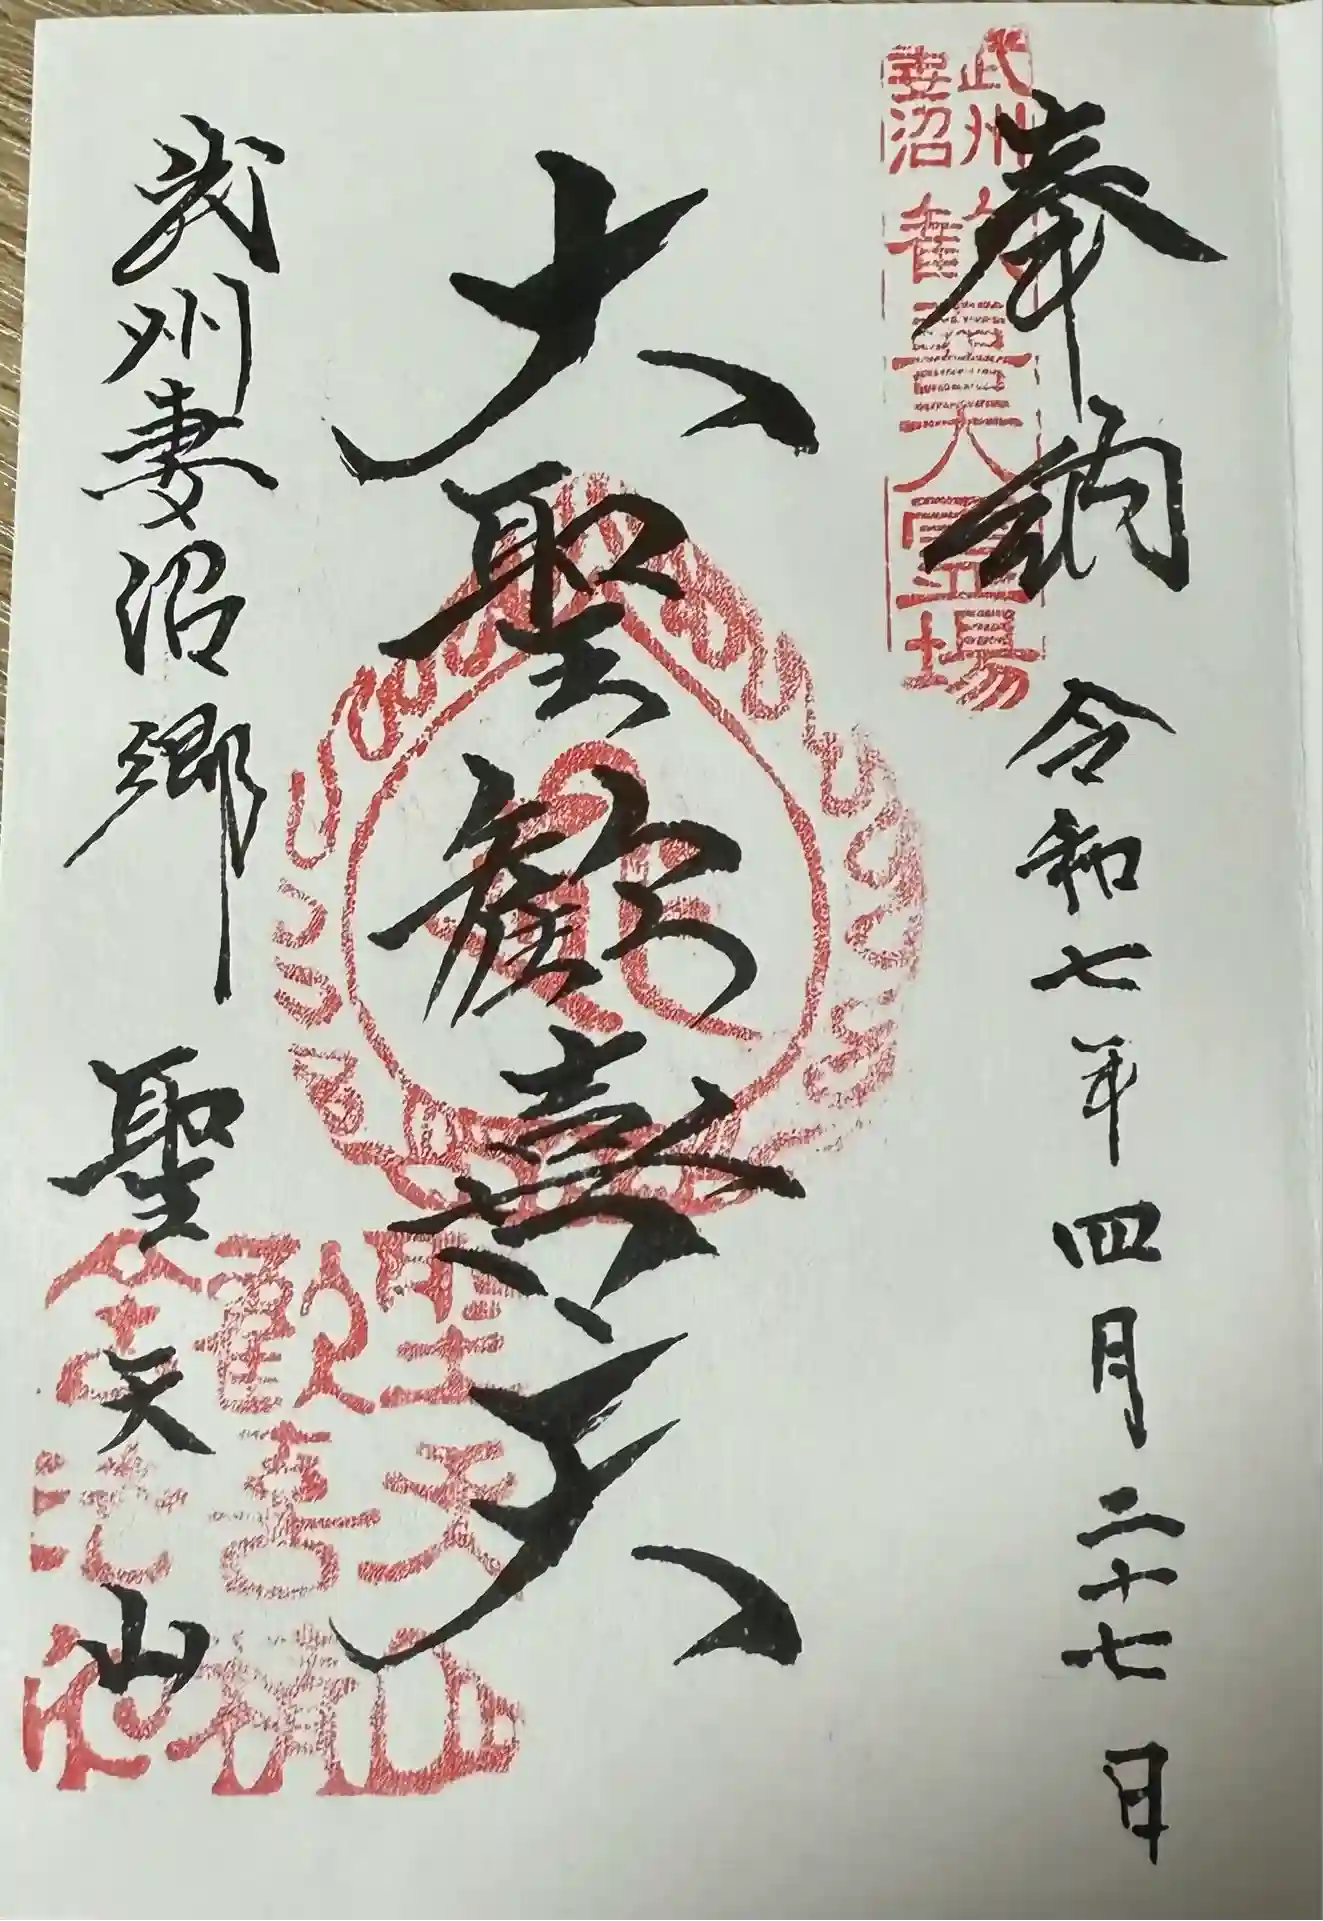 奉納 令和七年四月二十七日
武州
妻沼
歓喜天霊場
大聖歓喜天
武州妻沼郷 聖天山